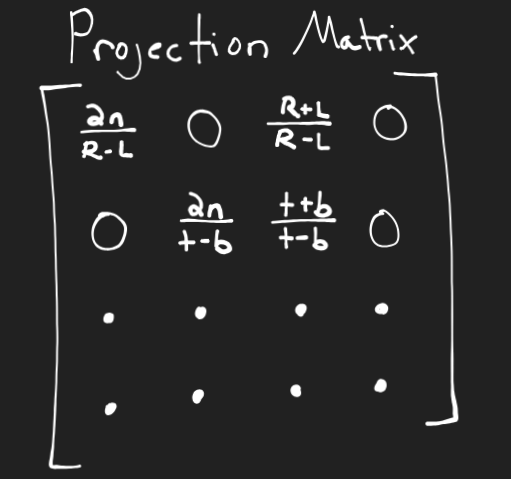 Projection Matrix
2n/R-L 0 R+L/R-L 0
0 2n/t-b t+b/t-b 0
. . . .
. . . .